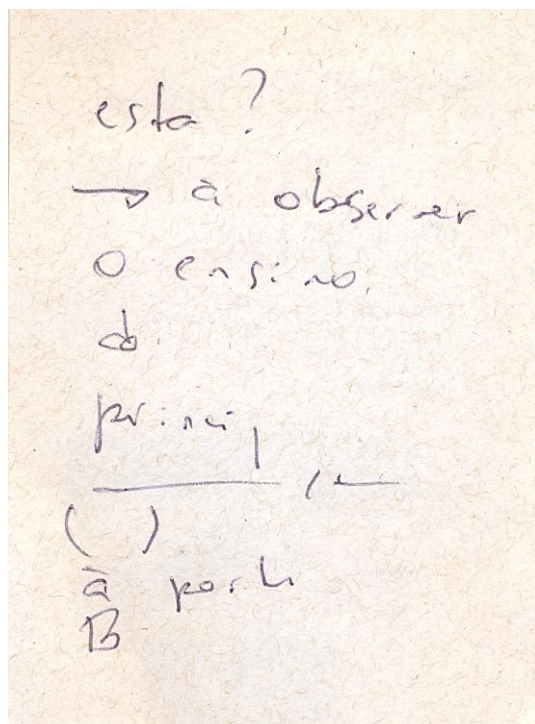 esta ?
→ à observer
o ensino.
do
princip
( )
à
B